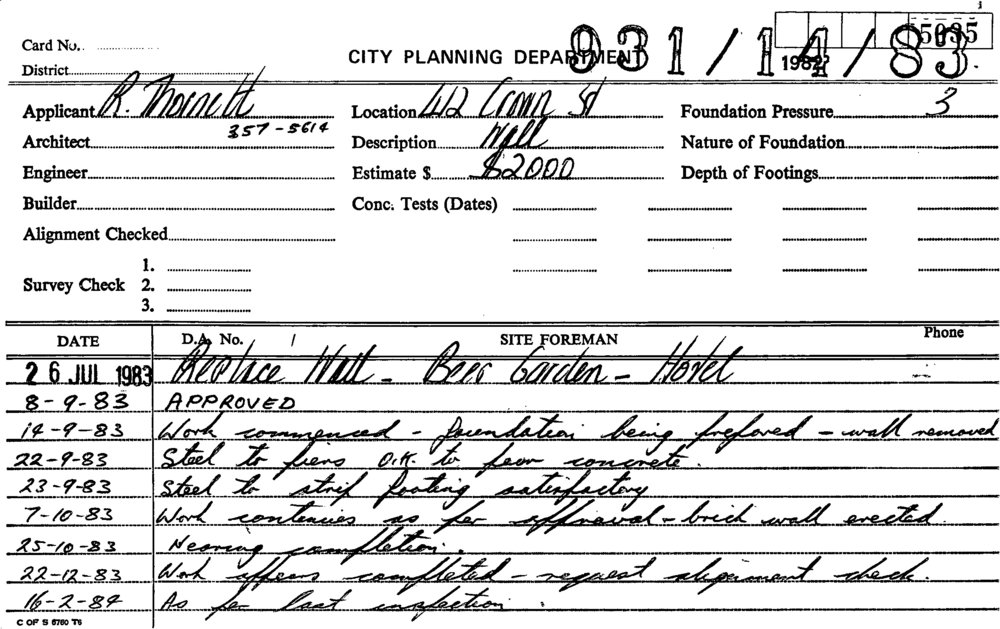 5035
Card No.
CITY PLANNING DEPARTMENT 931/14/83.
District
1982
Applicant R. Thornett Location 412 Crown St Foundation Pressure 3
357-5614
Architect Description Wall Nature of Foundation
Engineer Estimate $ $2000 Depth of Footings
Builder Conc. Tests (Dates)
Alignment Checked
1.
Survey Check 2.
3.
DATE D.A. No. / SITE FOREMAN Phone
26 JUL 1983 Replace Wall - Beer Garden - Hotel
8-9-83 APPROVED
14-9-83 Work commenced - foundation being prepared - wall removed
22-9-83 Steel to piers O.K. to pour concrete.
23-9-83 Steel to strip footing satisfactory
7-10-83 Work continues as per approval - brick wall erected.
25-10-83 Nearing completion.
22-12-83 Work appears completed - request alignment check.
16-2-84 As per last inspection.
C OF S 6760 T6